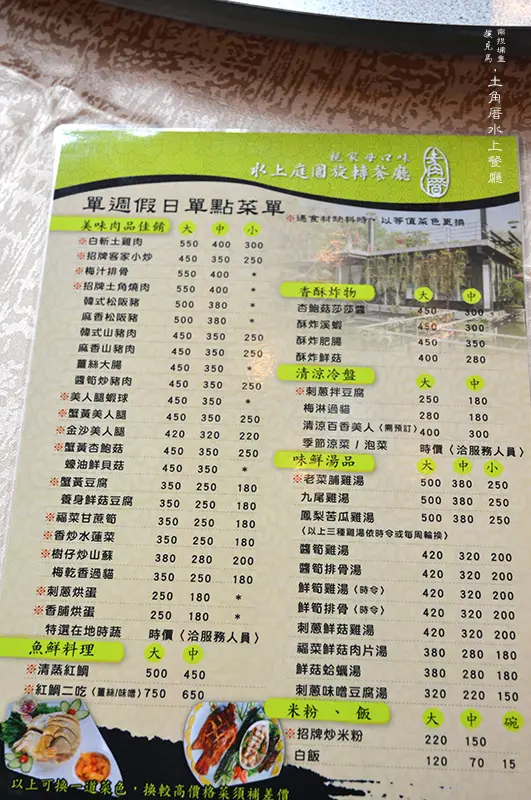 南投埔里
撲克馬，土角厝水上餐廳
親家母口味
水上庭園旋轉餐廳
土角厝
單週假日單點菜單
※遇食材缺料時，以等值菜色更換
美味肉品佳餚 大 中 小
※白斬土雞肉 550 400 300
※招牌客家小炒 450 350 250
※梅汁排骨 550 400 *
※招牌土角燒肉 550 400 *
韓式松阪豬 500 380 *
麻香松阪豬 500 380 *
韓式山豬肉 450 350 250
麻香山豬肉 450 350 250
薑絲大腸 450 350 *
醬筍炒豬肉 450 350 250
※美人腿蝦球 450 350 *
※蟹黃美人腿 450 350 250
※金沙美人腿 420 320 220
※蟹黃杏鮑菇 450 350 250
蠔油鮮貝菇 450 350 *
※蟹黃豆腐 350 250 180
養身鮮菇豆腐 350 250 180
※福菜甘蔗筍 350 250 180
※香炒水蓮菜 350 250 180
※樹仔炒山蘇 380 280 200
梅乾香過貓 350 250 180
※刺蔥烘蛋 250 180 *
※香脯烘蛋 250 180 *
特選在地時蔬 時價〈洽服務人員〉
魚鮮料理 大 中
※清蒸紅鯛 500 450
※紅鯛二吃〈薑絲/味噌〉 750 650
香酥炸物 大 中
杏鮑菇莎莎醬 450 300
酥炸溪蝦 450 300
酥炸肥腸 450 350
酥炸鮮菇 400 280
清涼冷盤 大 中
※刺蔥拌豆腐 250 180
梅淋過貓 280 180
清涼百香美人〈需預訂〉 400 300
季節涼菜/泡菜 時價〈洽服務人員〉
味鮮湯品 大 中 小
※老菜脯雞湯 500 380 250
九尾雞湯 500 380 250
鳳梨苦瓜雞湯 500 380 250
〈以上三種雞湯依時令或每周輪換〉
醬筍雞湯 420 320 200
醬筍排骨湯 420 320 200
鮮筍雞湯〈時令〉 420 320 200
鮮筍排骨〈時令〉 420 320 200
刺蔥鮮菇雞湯 420 320 200
福菜鮮菇肉片湯 380 280 180
鮮菇蛤蠣湯 380 280 180
刺蔥味噌豆腐湯 320 220 150
米粉、飯 大 中 碗
※招牌炒米粉 220 150
白飯 120 70 15
以上可換一道菜色，換較高價格菜須補差價